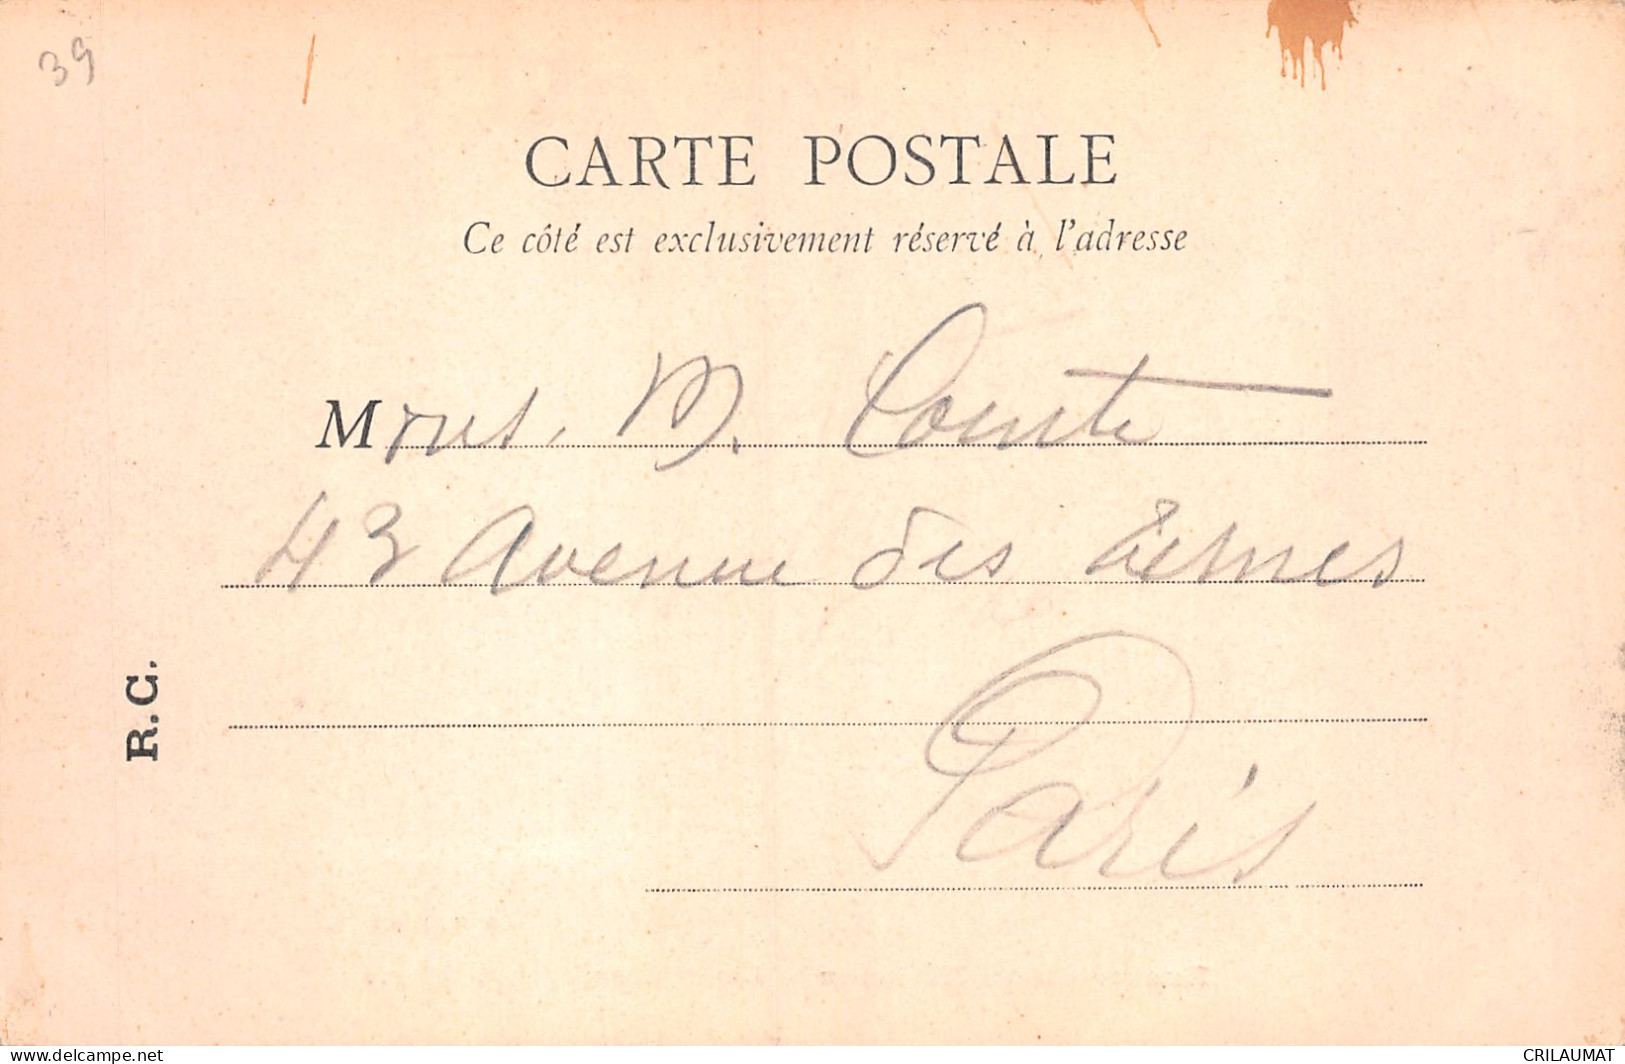 39
CARTE POSTALE
Ce côté est exclusivement réservé à l'adresse
M. Comte
43 Avenue des Ternes
Paris
R.C.
www.delcampe.net
CRILAUMAT